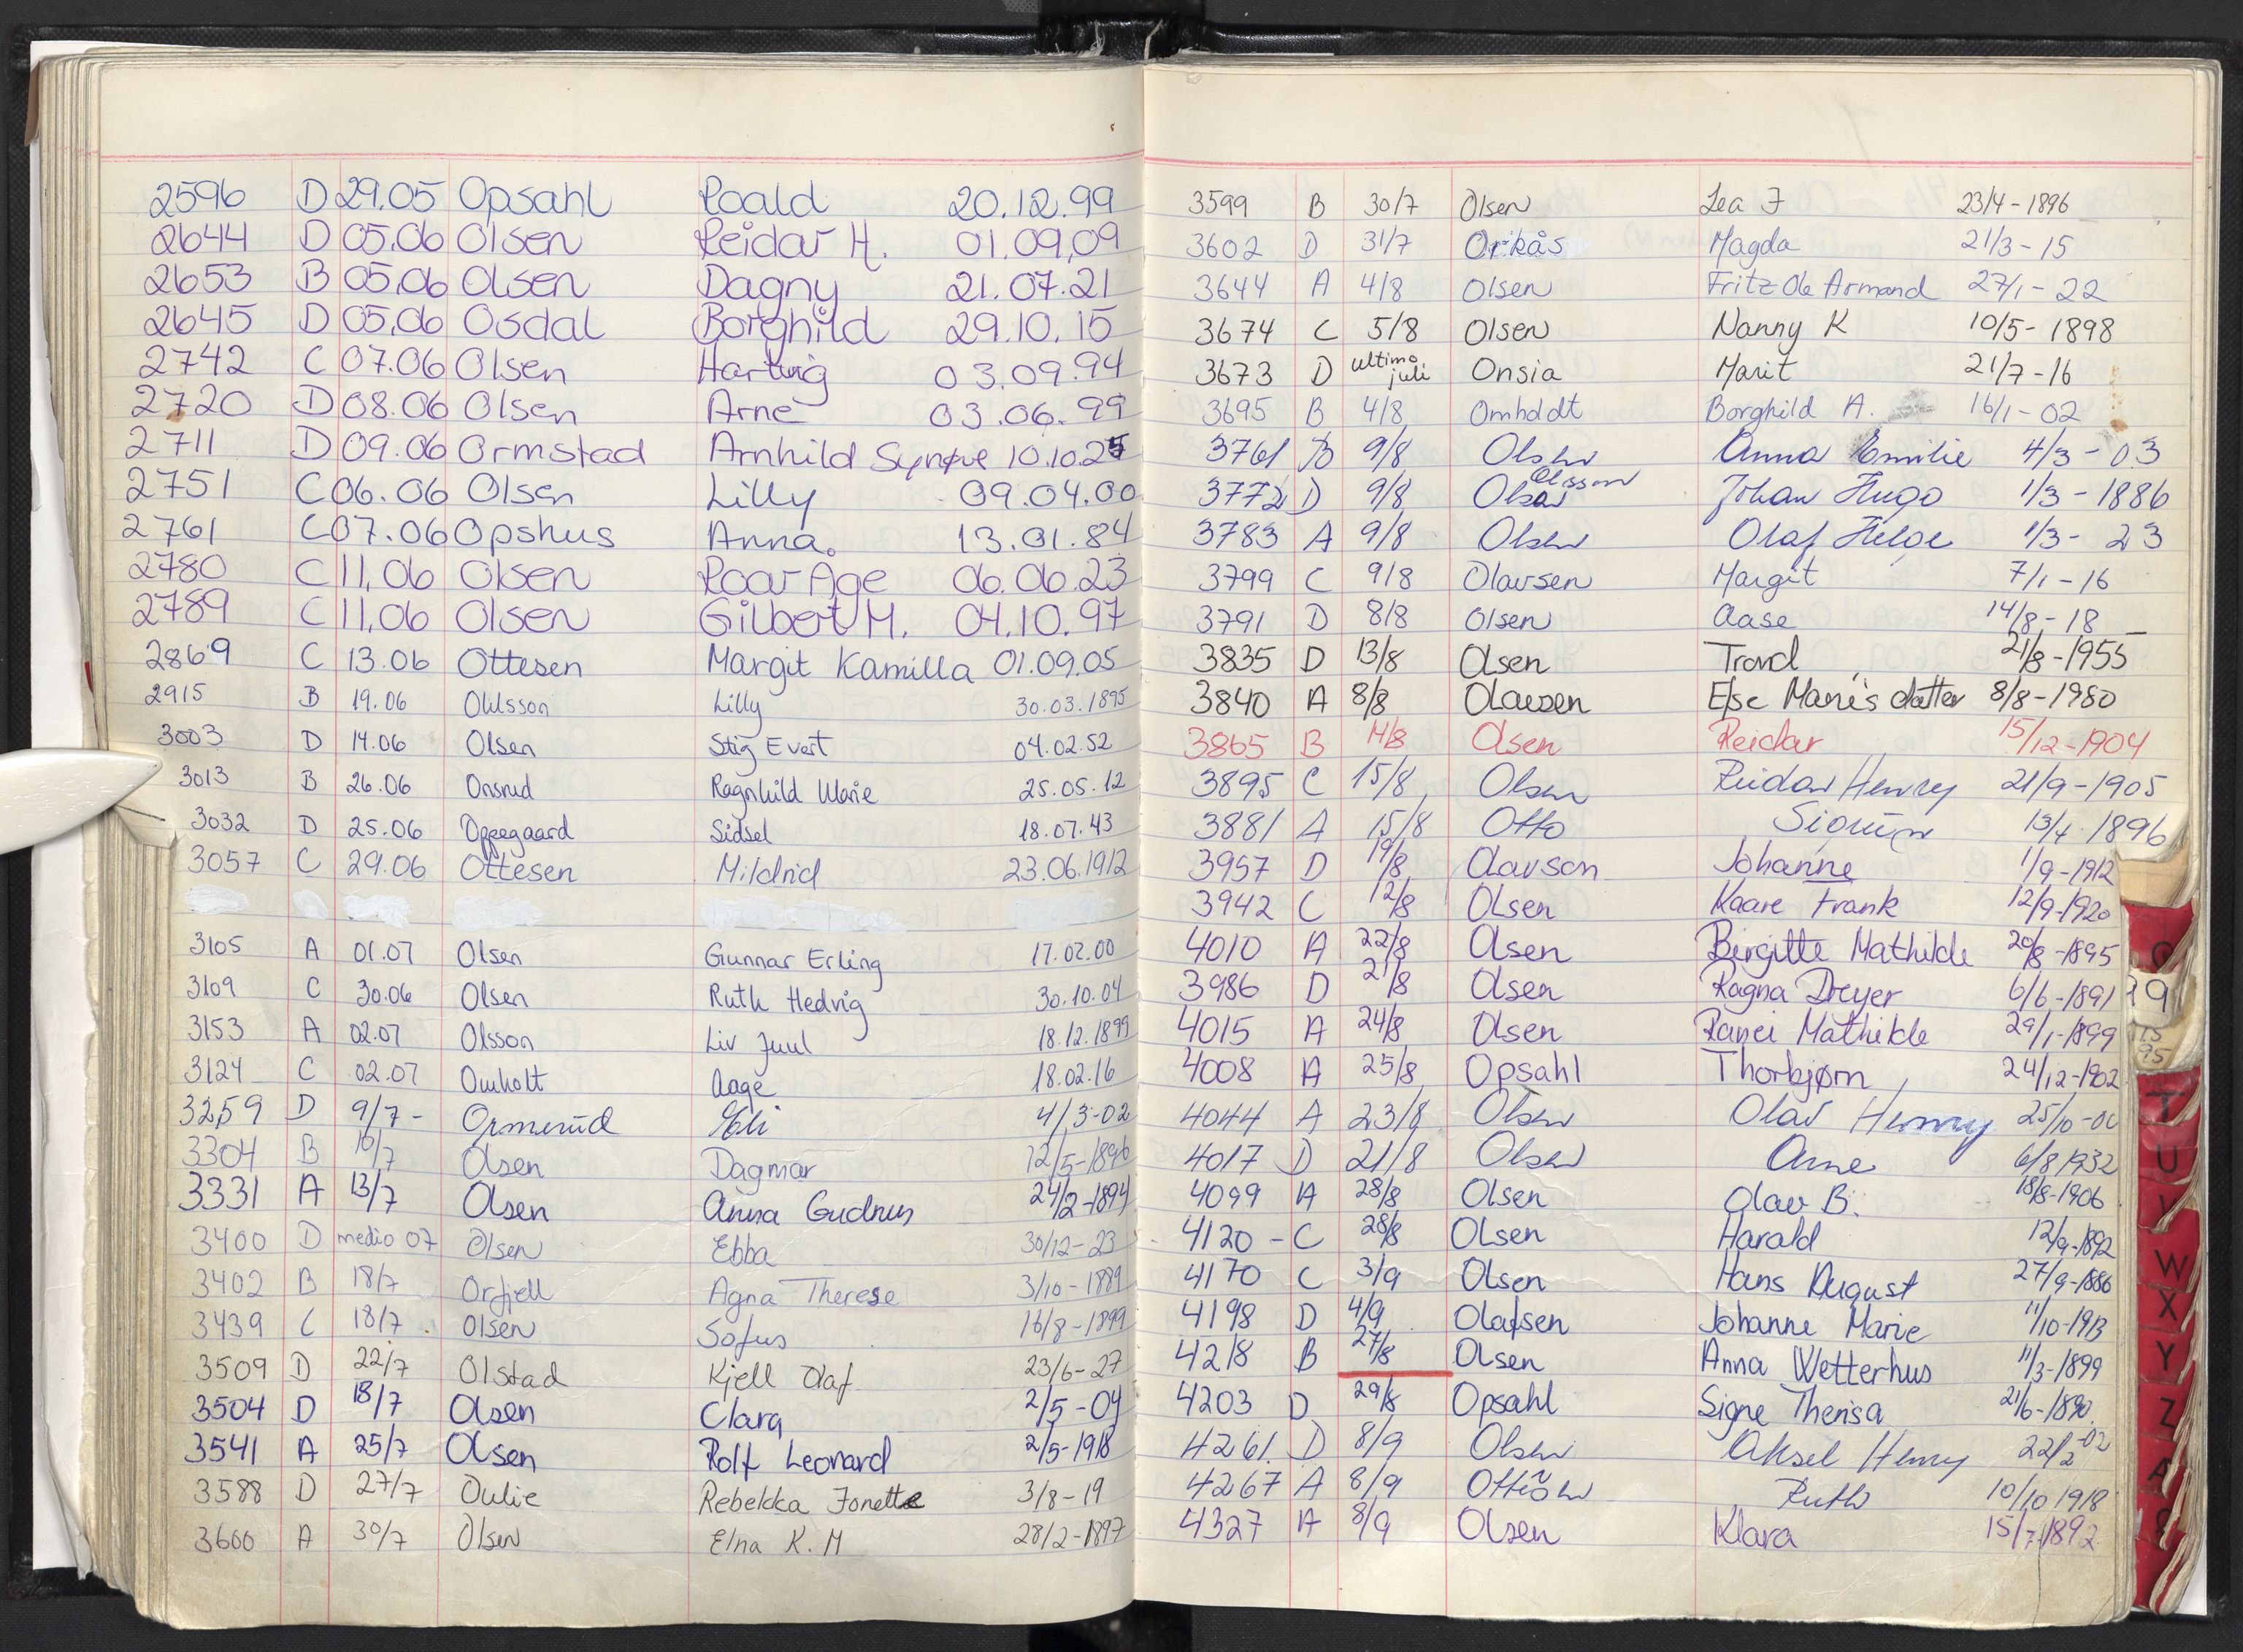 2596 D 29.05 Opsahl Roald 20.12.99
2644 D 05.06 Olsen Reidar H. 01.09.09
2653 B 05.06 Olsen Dagny 21.07.21
2645 D 05.06 Osdal Borghild 29.10.15
2742 C 07.06 Olsen Hartvig 03.09.94
2720 D 08.06 Olsen Arne 03.06.99
2711 D 09.06 Ormstad Arnhild Synøve 10.10.25
2751 C 06.06 Olsen Lilly 09.04.00
2761 C 07.06 Opshus Anna. 13.01.84
2780 C 11.06 Olsen Roar Åge 06.06.23
2789 C 11.06 Olsen Gilbert M. 04.10.97
2869 C 13.06 Ottesen Margit Kamilla 01.09.05
2915 B 19.06 Ohlsson Lilly 30.03.1895
3003 D 14.06 Olsen Stig Evert 04.02.52
3013 B 26.06 Onsrud Ragnhild Marie 25.05.12
3032 D 25.06 Oppegaard Sidsel 18.07.43
3057 C 29.06 Ottesen Mildrid 23.06.1912
3105 A 01.07 Olsen Gunnar Erling 17.02.00
3109 C 30.06 Olsen Ruth Hedvig 30.10.04
3153 A 02.07 Olsson Liv Juul 18.12.1899
3124 C 02.07 Omholt Aage 18.02.16
3259 D 9/7- Ormerud Eli 4/3-02
3304 B 10/7 Olsen Dagmar 12/5-1896
3331 A 13/7 Olsen Anna Gudrun 24/2-1894
3400 D medio 07 Olsen Ebba 30/12-23
3402 B 18/7 Orfjell Agna Therese 3/10-1889
3439 C 18/7 Olsen Sofus 16/8-1899
3509 D 22/7 Olstad Kjell Olaf 23/6-27
3504 D 18/7 Olsen Clara 2/5-04
3541 A 25/7 Olsen Rolf Leonard 2/5-1918
3588 D 27/7 Oulie Rebekka Jonette 3/8-19
3600 A 30/7 Olsen Elna K. M 28/2-1897
3599 B 30/7 Olsen Lea J 23/4-1896
3602 D 31/7 Orkås Magda 21/3-15
3644 A 4/8 Olsen Fritz Ole Armand 27/1-22
3674 C 5/8 Olsen Nanny K 10/5-1898
3673 D ultimo juli Onsia Marit 21/7-16
3695 B 4/8 Omholdt Borghild A. 16/1-02
3761 B 9/8 Olsen Anna Emilie 4/3-03
3772 D 9/8 Olsen Olsson Johan Hugo 1/3-1886
3783 A 9/8 Olsen Olaf Helge 1/3-23
3799 C 9/8 Olavsen Margit 7/1-16
3791 D 8/8 Olsen Aase 14/8-18
3835 D 13/8 Olsen Trond 21/8-1955
3840 A 8/8 Olaussen Else Marie's datter 8/8-1980
3865 B 14/8 Olsen Reidar 15/12-1904
3895 C 15/8 Olsen Reidar Henry 21/9-1905
3881 A 15/8 Otto 13/4 1896
3957 D 19/8 Olavson Johanne 1/9-1912
3942 C 12/8 Olsen Kaare Frank 12/9-1920
4010 A 22/8 Olsen Birgitte Mathilde 20/8-1895
3986 D 21/8 Olsen Ragna Dreyer 6/6-1891
4015 A 24/8 Olsen Ranei Mathilde 29/1-1899
4008 A 25/8 Opsahl Thorbjørn 24/12-1902
4044 A 23/8 Olsen Olav Henry 25/10-00
4017 D 21/8 Olsen Arne 6/8 1932
4099 A 28/8 Olsen Olav B. 18/8-1906
4120 - C 28/8 Olsen Harald 12/9-1892
4170 C 3/9 Olsen Hans August 27/9-1886
4198 D 4/9 Olafsen Johanne Marie 11/10-1913
4218 B 27/8 Olsen Anna Wetterhus 11/3-1899
4203 D 29/8 Opsahl Signe Therisa 21/6-1890
4261 D 8/9 Olsen Aksel Henry 22/2-02
4267 A 8/9 Ruth 10/10 1918
4327 A 8/9 Olsen Klara 15/7-1892
T
U
V
W
X
Y
Z